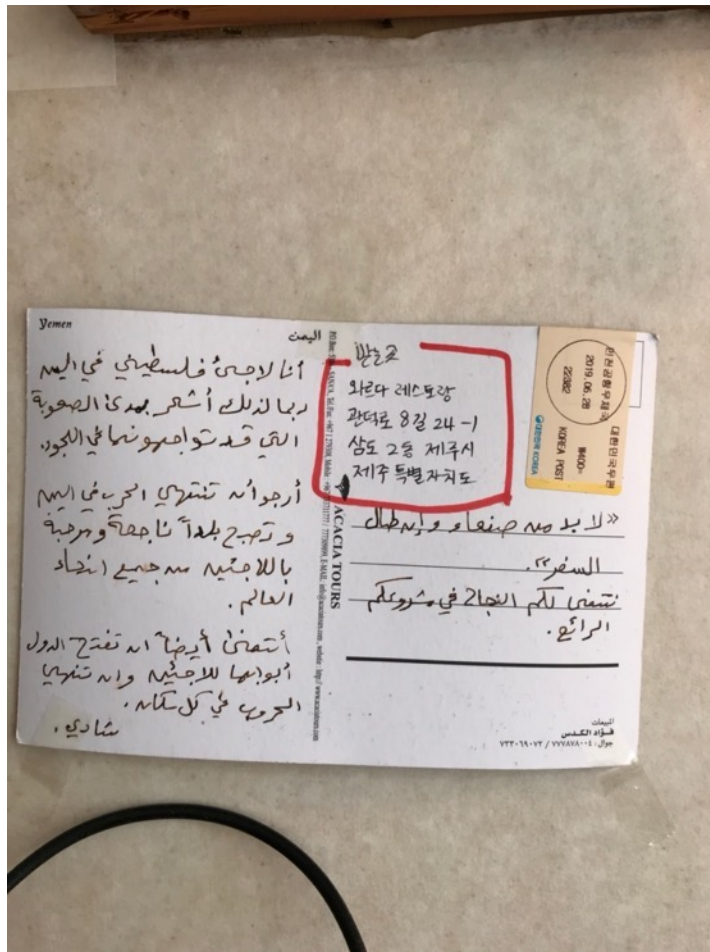 Yemen
اليمن
أنا لاجئ فلسطيني في اليمن
ربما لذلك أشعر بمدى الصعوبة
التي قد تواجهونها في اللجوء.
أرجو أن تنتهي الحرب في اليمن
و تصبح بلداً ناجحة و مرحبة
باللاجئين من جميع انحاء
العالم.
أتمنى أيضاً ان تفتح الدول
أبوابها للاجئين وان تنتهي
الحروب في كل مكان.
شادي.
ACACIA TOURS
받는곳
와르다 레스토랑
관덕로 8길 24-1
삼도 2동 제주시
제주 특별자치도
인천공항우체국
2019.06.28
22382
대한민국우편
₩400
KOREA POST
대한민국 KOREA
«لا بد من صنعاء وإن طال
السفر».
نتمنى لكم النجاح في مشروعكم
الرائع.
المبيعات
فؤاد الكدس
جوال: ٧٧٧٨٧٨٠٠٤ / ٧٣٣٠٦٩٠٧٢